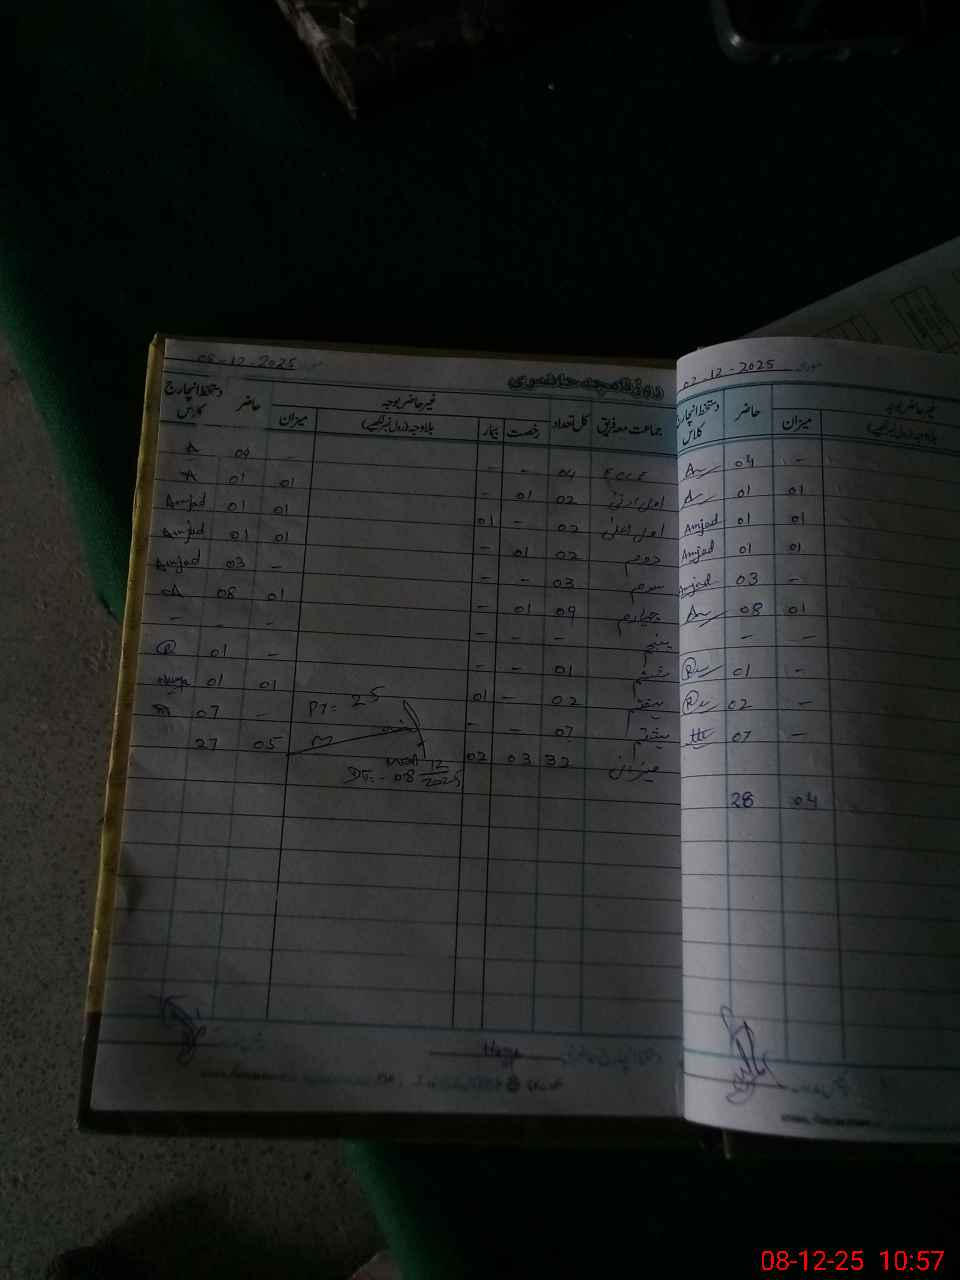 08-12-2025 مورخہ
روزنامچہ حاضری
جماعت معہ فریق کل تعداد غیر حاضر بوجہ حاضر دستخط انچارج کلاس
رخصت بیمار بلاوجہ (رول نمبر لکھیے) میزان
ECCE 04 - - - 04 A
اول ادنیٰ 02 01 - 01 01 A
اول اعلیٰ 02 - 01 01 01 Amjad
دوم 02 01 - 01 01 Amjad
سوم 03 - - - 03 Amjad
چہارم 09 01 - 01 08 A
پنجم - - - - - -
ششم 01 - - - 01
ہفتم 02 - 01 01 01
ہشتم 07 - - - 07
میزان 32 03 02 05 27
PT:- 25
DT:- 08 12 2025
02-12-2025 مورخہ
غیر حاضر بوجہ حاضر دستخط انچارج کلاس
بلاوجہ (رول نمبر لکھیے) میزان
- 04
01 01
01 01 Amjad
01 01 Amjad
- 03 Amjad
01 08
- -
- 01
- 02
- 07
04 28
08-12-25 10:57